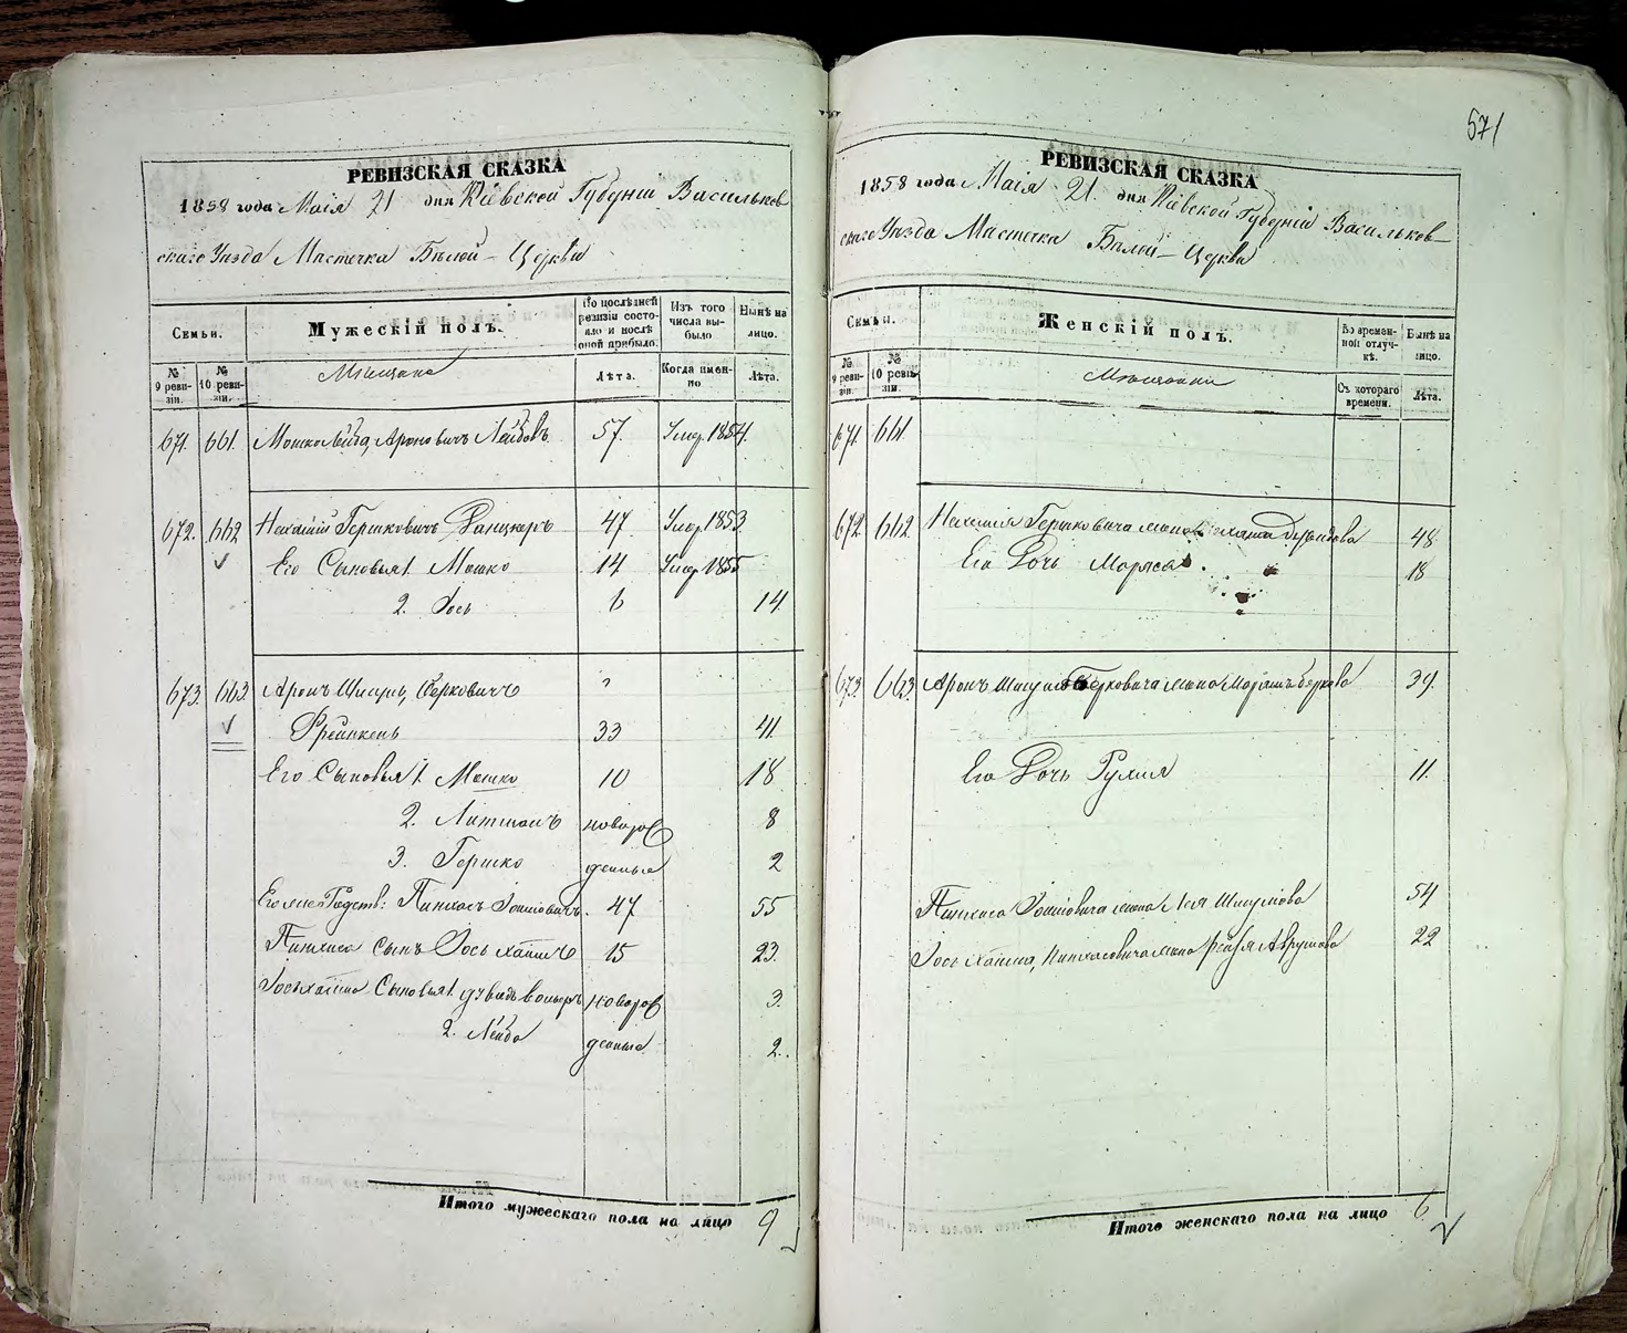 571
РЕВИЗСКАЯ СКАЗКА
1858 года Маія 21 дня Кіевской Губерніи Васильков
скаго Уѣзда Мѣстечка Бѣлой-Церкви
Семьи.
Мужескій полъ.
По послѣдней ревизіи состояло и послѣ оной прибыло.
Изъ того числа выбыло
Нынѣ на лицо.
№ 9 ревизіи.
№ 10 ревизіи.
Мѣщане
Лѣта.
Когда именно
Лѣта.
671. 661. Мошко Лейба, Ароновичъ Лейбовъ 57. Умер. 1854.
672. 662 Гершковичъ Данцкеръ 47 Умер. 1853
Его Сыновья 1. Мошко 14 Умер. 1855
2. Іось 6 14
673. 663. Аронъ Шмуль, Берковичъ
Френкель 33 41
Его Сыновья 1. Мошко 10 18
2. новорож 8
3. Гершко денные 2
Его же Родств: Пинхасъ 47 55
Пинхаса Сынъ Іось Хаимъ 15 23.
Іось Хаима Сыновья 1. новорож 3.
2. Лейба денные 2.
Итого мужескаго пола на лицо 9
РЕВИЗСКАЯ СКАЗКА
1858 года Маія 21. дня Кіевской Губерніи Васильков-
скаго Уѣзда Мѣстечка Бѣлой-Церкви
Семьи.
Женскій полъ.
Во временной отлучкѣ.
Нынѣ на лицо.
№ 9 ревизіи.
№ 10 ревизіи.
Мѣщанки
Съ котораго времени.
Лѣта.
671. 661
672 662. Гершковича жена 48
Его Дочь 18
673 663. Аронъ Шмуля Берковича жена Беркова 39.
Его Дочь 11.
Пинхаса жена Лея Шмулиова 54
Іось Хаима, Пинхасовича жена 22
Итого женскаго пола на лицо 6